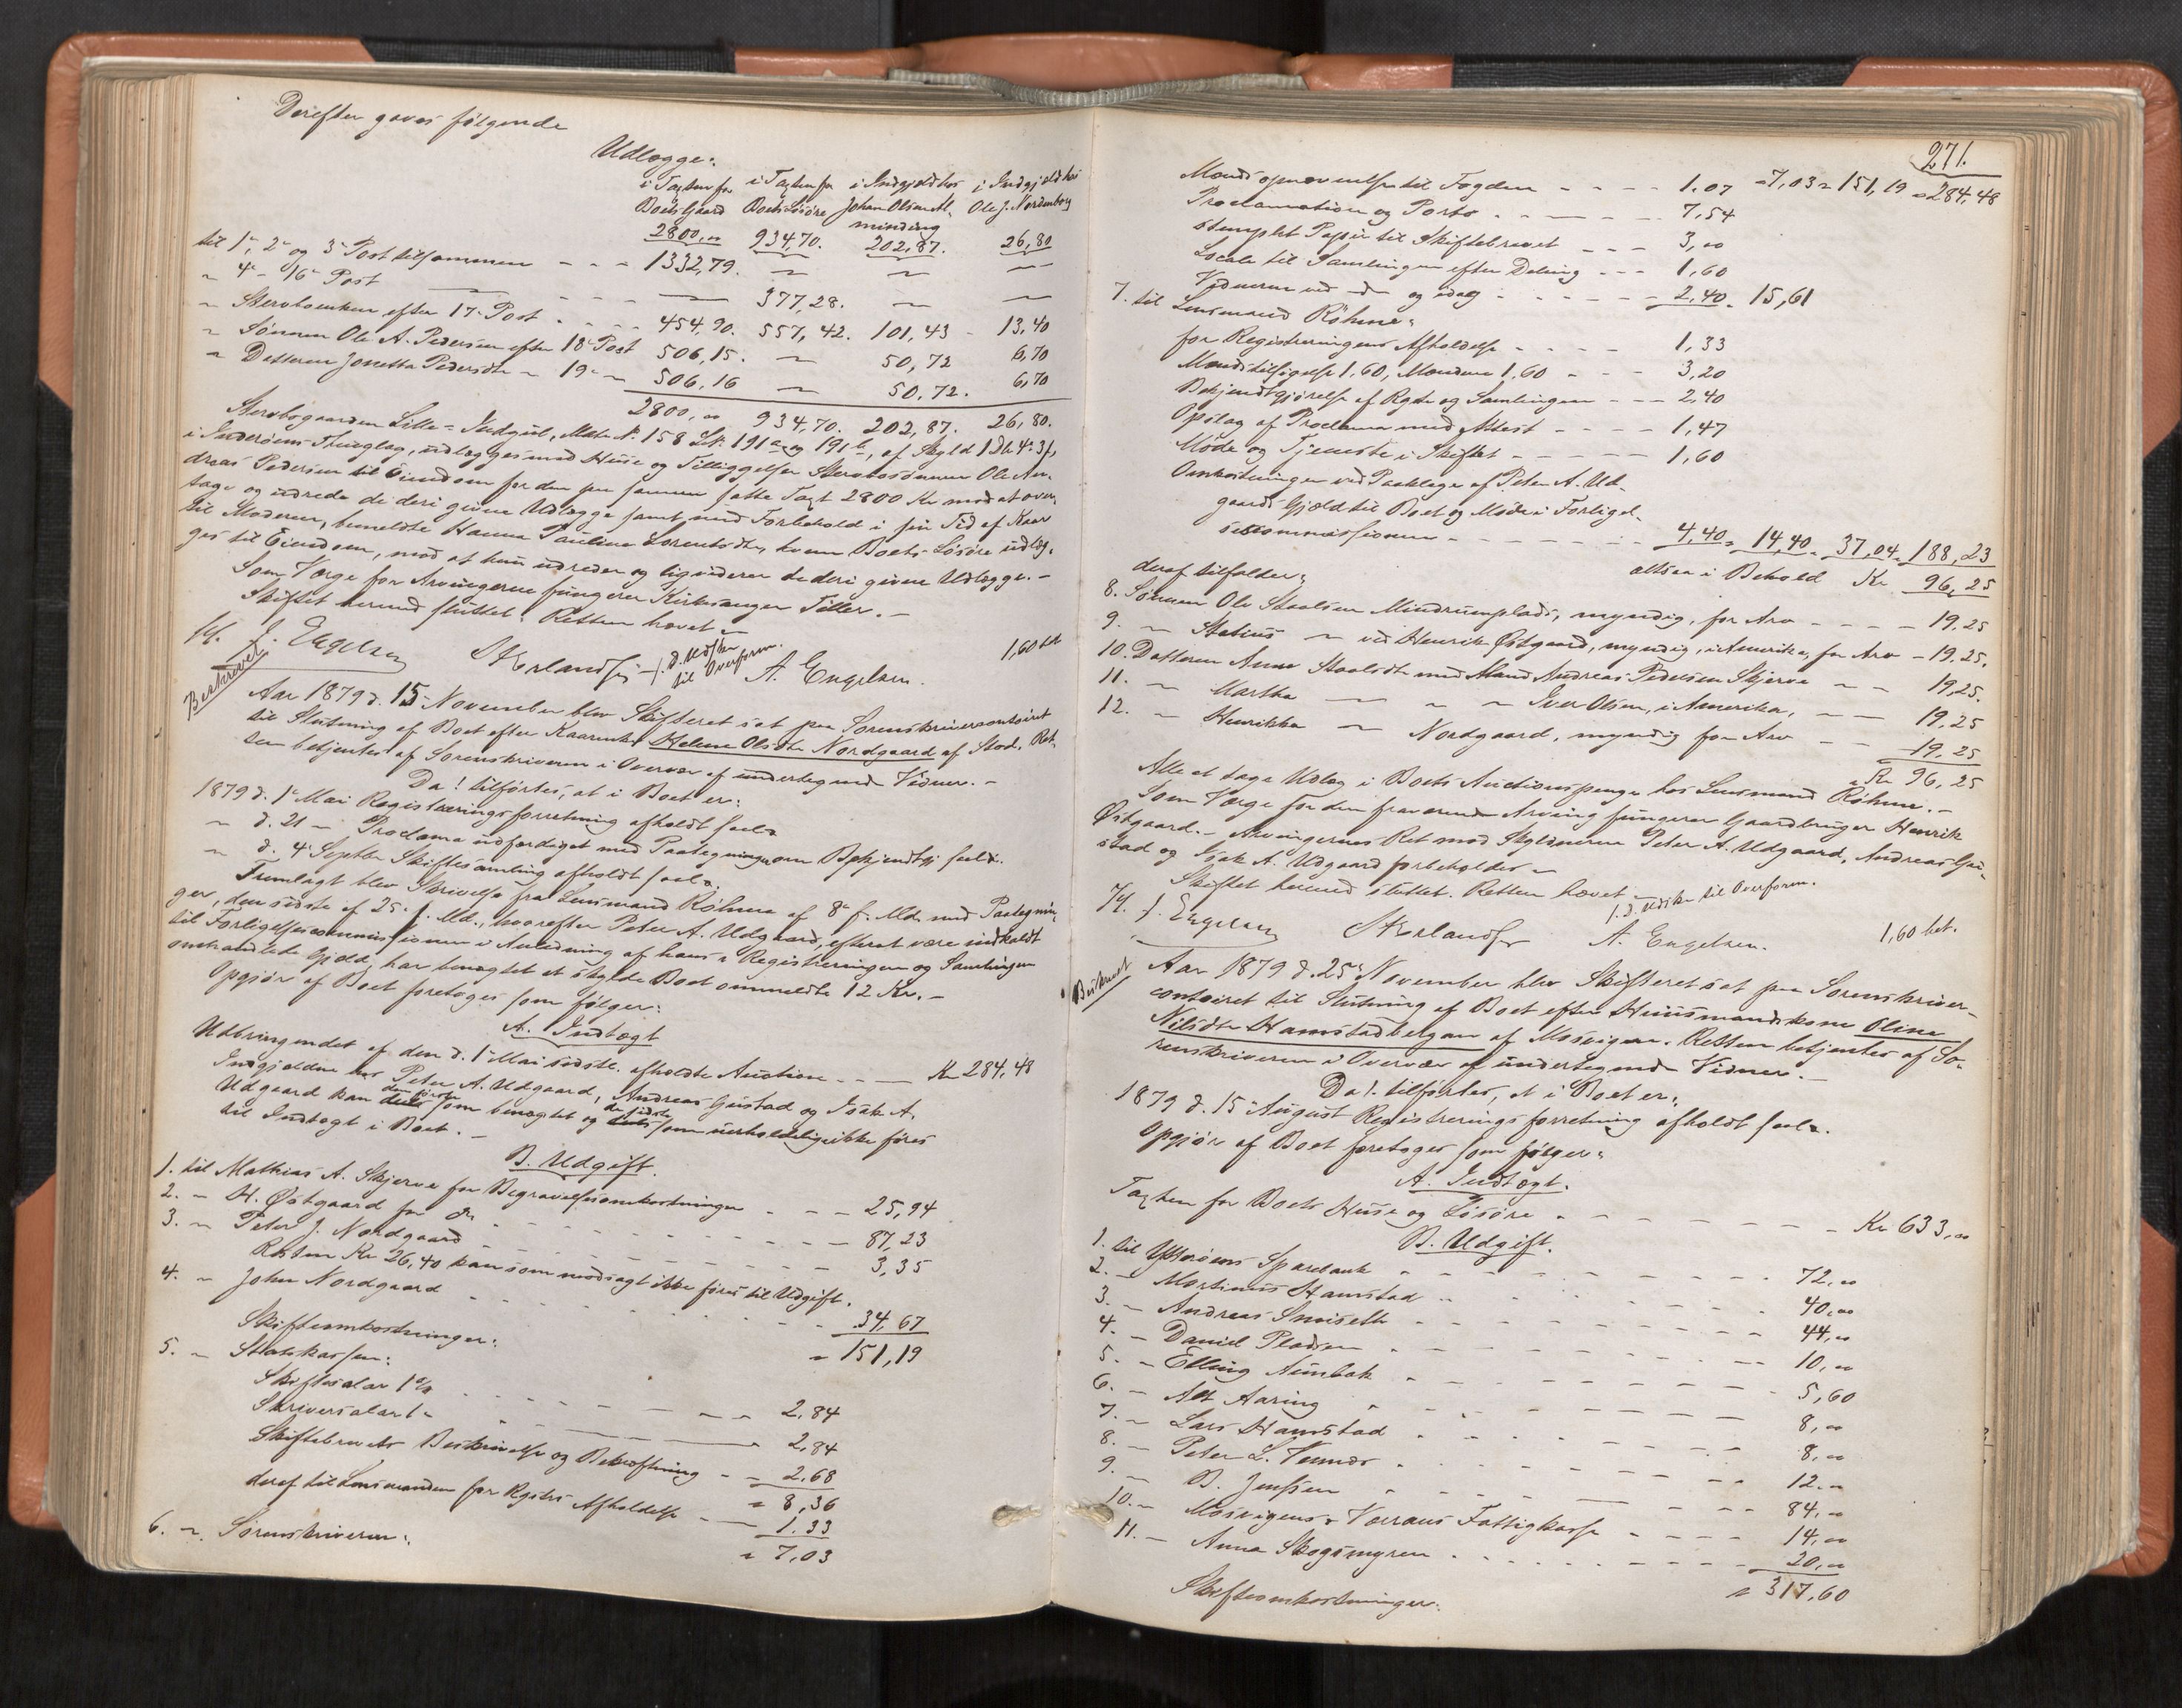 Derefter gaves følgende
Udlægge:
i Taxten for i Taxten for i Indgjeld hos i Indgjeld hos
Boets Gaard Boets Løsøre Johan Olsen Al- Ole J. Nordenborg
minding
2800,00 934,70. 202,87. 26,80
til 1e, 2e og 3e Post tilsammen - - - 1332,79. — — —
" 4e - 16e Post — - - - — 377,28. — —
" Stervboenken efter 17e Post - - - - 454,90. 557,42. 101,43 - 13,40
" Sønnen Ole A. Pedersen efter 18e Post 506,15. — 50,72 6,70
" Datteren Jonetta Pedersdtr " 19e " 506,16 — 50,72. 6,70
2800,00 934,70. 202,87. 26,80.
Stervbogaarden Lille-, Matr. N. 158 Lit. 191a og 191b, af Skyld 1 Dlr. 4 3 ß,
i Inderøens Thinglag, udlægges med Huse og Tilliggelser Stervbosønnen Ole An-
dreas Pedersen til Eiendom for den paa samme satte Taxt 2800 Kr mod at over-
tage og udrede de deri givne Udlægge samt med Forbehold i sin Tid af Kaar
til Moderen, bemeldte Hanna Pauline Lorentsdtr, hvem Boets Løsøre udlæg-
ges til Eiendom, mod at hun udreder og liqviderer de deri givne Udlægge. -
Som Værge for Arvingerne fungerer Kirkesanger Tiller. -
Skiftet hermed sluttet. Retten hævet -
J. Engelsen St Erlandsen A. Engelsen. 1,60 bet
f. d. Udskr til Overform.
Beskrevet
Aar 1879 d. 15e November blev Skifteret sat paa Sorenskrivercontoiret
til Slutning af Boet efter Kaarenke Helene Olsdtr Nordgaard af Stod. Ret-
ten betjentes af Sorenskriveren i Overvær af undertegnede Vidner. -
Da! tilførtes, at i Boet er:
1879 d. 1e Mai Registreringsforretning afholdt saal.
" d. 21 " Proclama udfærdiget med Paategninger om Bekjendtgj saal.
" d. 4e Septbr Skiftesamling afholdt saal.
Fremlagt blev Skrivelse fra Lensmand Røhme af 8e f. Md. med Paategnin-
ger, den sidste af 25e f. Md., hvorefter Peter A. Udgaard, efterat være indkaldt
til Forligelsescommissionen i Anledning af hans i Registreringen og Samlingen
omhandlede Gjæld, har benægtet at skylde Boet ommeldte 12 Kr. -
Opgjør af Boet foretoges som følger:
A. Indtægt
Udbringendet af den d. 1e Mai sidstl. afholdte Auction - - - Kr 284,48
Indgjælden hos Peter A. Udgaard, Andreas Gustad og Isak A.
Udgaard kan den første som benægtet og de sidste som uerholdelige ikke føres
til Indtægt i Boet. -
B. Udgift.
1. til Mathias A. Skjerve for Begravelsesomkostninger - - - 25,94
2. " H. Østgaard for do - - - - - - - - 87,23
3. " Peter J. Nordgaard - - - - - - - - 3,35
Resten Kr 26,40 kan som modsagt ikke føres til Udgift.
4. " John Nordgaard - - - - - - - - 34,67
" 151,19
Skifteomkostninger:
5. " Statskassen:
Skiftesalær 1% - - - - - - - 2,84
Skriversalær t - — 2,84
Skiftebrevets Beskrivelse og Bekræftning - - 2,68
" 8,36
deraf til Lensmanden for Regstrs Afholdelse - 1.33
" 7,03
6. " Sorenskriveren:
271.
Mændsopnævnelse til Fogden - - - - 1.07 " 7,03 " 151,19 " 284,48
Proclamation og Porto - - - - - 7,54
stemplet Papir til Skiftebrevet - - - 3,00
Locale til Samlingen efter Deling - - - 1,60
Vidnerne ved do og idag - - - - - 2,40. 15,61
7. til Lensmand Røhme:
for Registreringens Afholdelse - - - - 1,33
Mændstilsigelse 1,60, Mændene 1,60 - - - 3,20
Bekjendtgjørelse af Rgstr og Samlingen - - - 2,40
Opslag af Proclama med Attest - - - - 1,47
Møde og Tjeneste i Skiftet - - - - - 1,60
Omkostninger ved Paaklage af Peter A. Ud-
gaards Gjæld til Boet og Møde i Forligel-
sescommissionen - - - - - - 4,40 " 14,40 " 37,04 " 188,23
altsaa i Behold Kr 96,25
deraf tilfalder:
8. Sønnen Ole Staalsen Mindrumplads, myndig, for Arv - - - - 19,25
9. " Statius " ved Henrik Østgaard, myndig, i Amerika, for Arv - 19,25.
10. Datteren Anne Staalsdtr med Mand Andreas Pedersen Skjerve - - 19,25.
11. " Martha — " " Iver Olsen, i Amerika, - - 19,25
12. " Henrikka " Nordgaard, myndig for Arv - - 19,25
" Kr 96,25
Alle at tage Udlæg i Boets Auctionspenge hos Lensmand Røhme. -
Som Værge for den fraværende Arving fungerer Gaardbruger Henrik
Østgaard. - Arvingernes Ret mod Skyldnerne Peter A. Udgaard, Andreas Gu-
stad og Isak A. Udgaard forbeholdes -
Skiftet hermed sluttet. Retten hævet -
J. Engelsen St Erlandsen A. Engelsen. 1,60 bet.
f. d. Udskr til Overform.
Beskrevet
Aar 1879 d. 25e November blev Skifteret sat paa Sorenskriver-
contoiret til Slutning af Boet efter Huusmandskone Oline
Nilsdtr Hamstadbergan af Mosvigen. Retten betjentes af So-
renskriveren i Overvær af undertegnede Vidner. -
Da! tilførtes, at i Boet er:
1879 d. 15e August Registreringsforretning afholdt saal.
Opgjør af Boet foretoges som følger:
A. Indtægt.
Taxten for Boets Huse og Løsøre - - - - - - - Kr 633,00
B. Udgift.
1. til Ytterøens Sparebank - - - - - - - 72,00
2. - Martinus Hamstad - - - - - - - 40,00
3. - Andreas Smiseth - - - - - - - 44,00
4. - Daniel - - - - - - - 10,00
5. - Elling Aunbak - - - - - - - 5,60
6. - Aaring - - - - - - - 8,00
7. - Lars Hamstad - - - - - - - 8,00
8. - Peter L. Vennes - - - - - - - 12,00
9. - B. Jenssen - - - - - - - 84,00
10. - Mosvigens & Værrans Fattigkasse - - - - 14,00
11. - Anna Skogsmyren - - - - - - - 20,00
" 317,60
Skifteomkostninger: